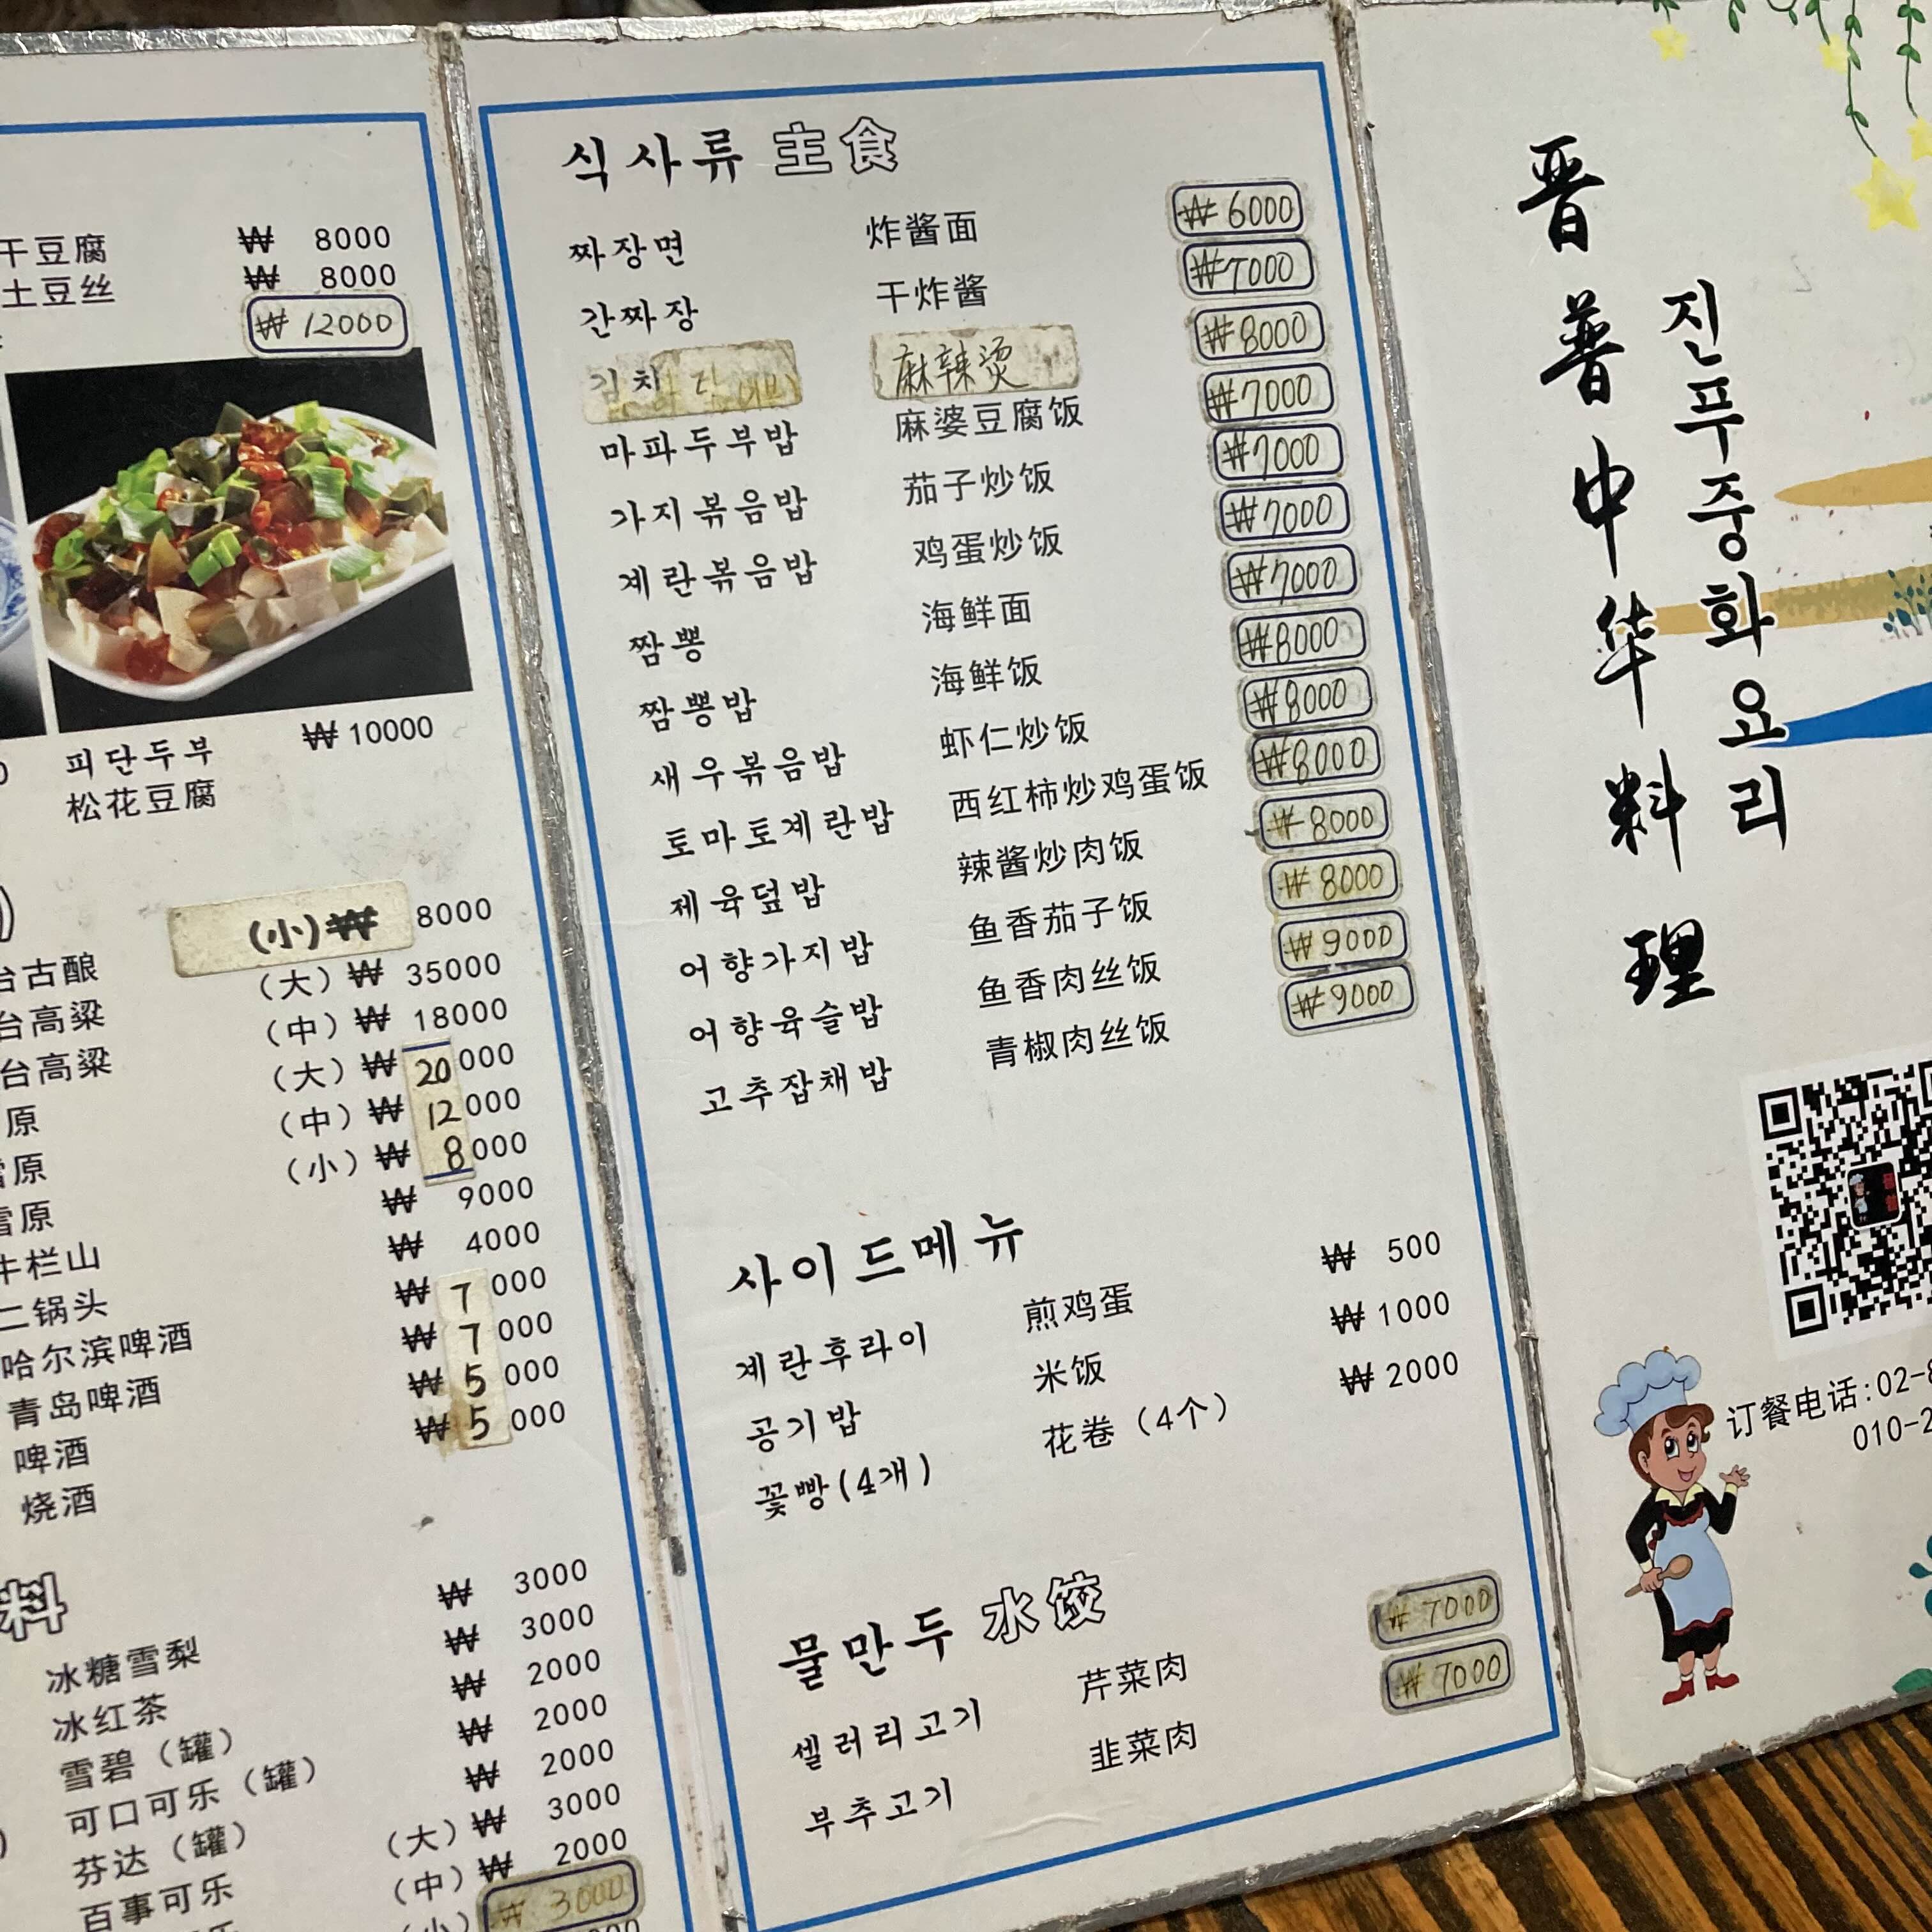 干豆腐 ₩ 8000
土豆丝 ₩ 8000
₩ 12000
피단두부 ₩ 10000
松花豆腐
(小) ₩ 8000
台古酿 (大) ₩ 35000
台高粱 (中) ₩ 18000
台高粱 (大) ₩ 20000
原 (中) ₩ 12000
雪原 (小) ₩ 8000
雪原 ₩ 9000
牛栏山 ₩ 4000
二锅头 ₩ 7000
哈尔滨啤酒 ₩ 7000
青岛啤酒 ₩ 5000
啤酒 ₩ 5000
烧酒
料
₩ 3000
冰糖雪梨 ₩ 3000
冰红茶 ₩ 2000
雪碧（罐） ₩ 2000
可口可乐（罐） ₩ 2000
芬达（罐） (大) ₩ 3000
百事可乐 (中) ₩ 2000
(小) ₩ 3000
식사류 主食
짜장면 炸酱面 ₩ 6000
간짜장 干炸酱 ₩ 7000
김치 麻辣烫 ₩ 8000
마파두부밥 麻婆豆腐饭 ₩ 7000
가지볶음밥 茄子炒饭 ₩ 7000
계란볶음밥 鸡蛋炒饭 ₩ 7000
짬뽕 海鲜面 ₩ 7000
짬뽕밥 海鲜饭 ₩ 8000
새우볶음밥 虾仁炒饭 ₩ 8000
토마토계란밥 西红柿炒鸡蛋饭 ₩ 8000
제육덮밥 辣酱炒肉饭 ₩ 8000
어향가지밥 鱼香茄子饭 ₩ 8000
어향육슬밥 鱼香肉丝饭 ₩ 9000
고추잡채밥 青椒肉丝饭 ₩ 9000
사이드메뉴
계란후라이 煎鸡蛋 ₩ 500
공기밥 米饭 ₩ 1000
꽃빵(4개) 花卷（4个） ₩ 2000
물만두 水饺
셀러리고기 芹菜肉 ₩ 7000
부추고기 韭菜肉 ₩ 7000
晋普中华料理
진푸중화요리
订餐电话:02-8
010-2